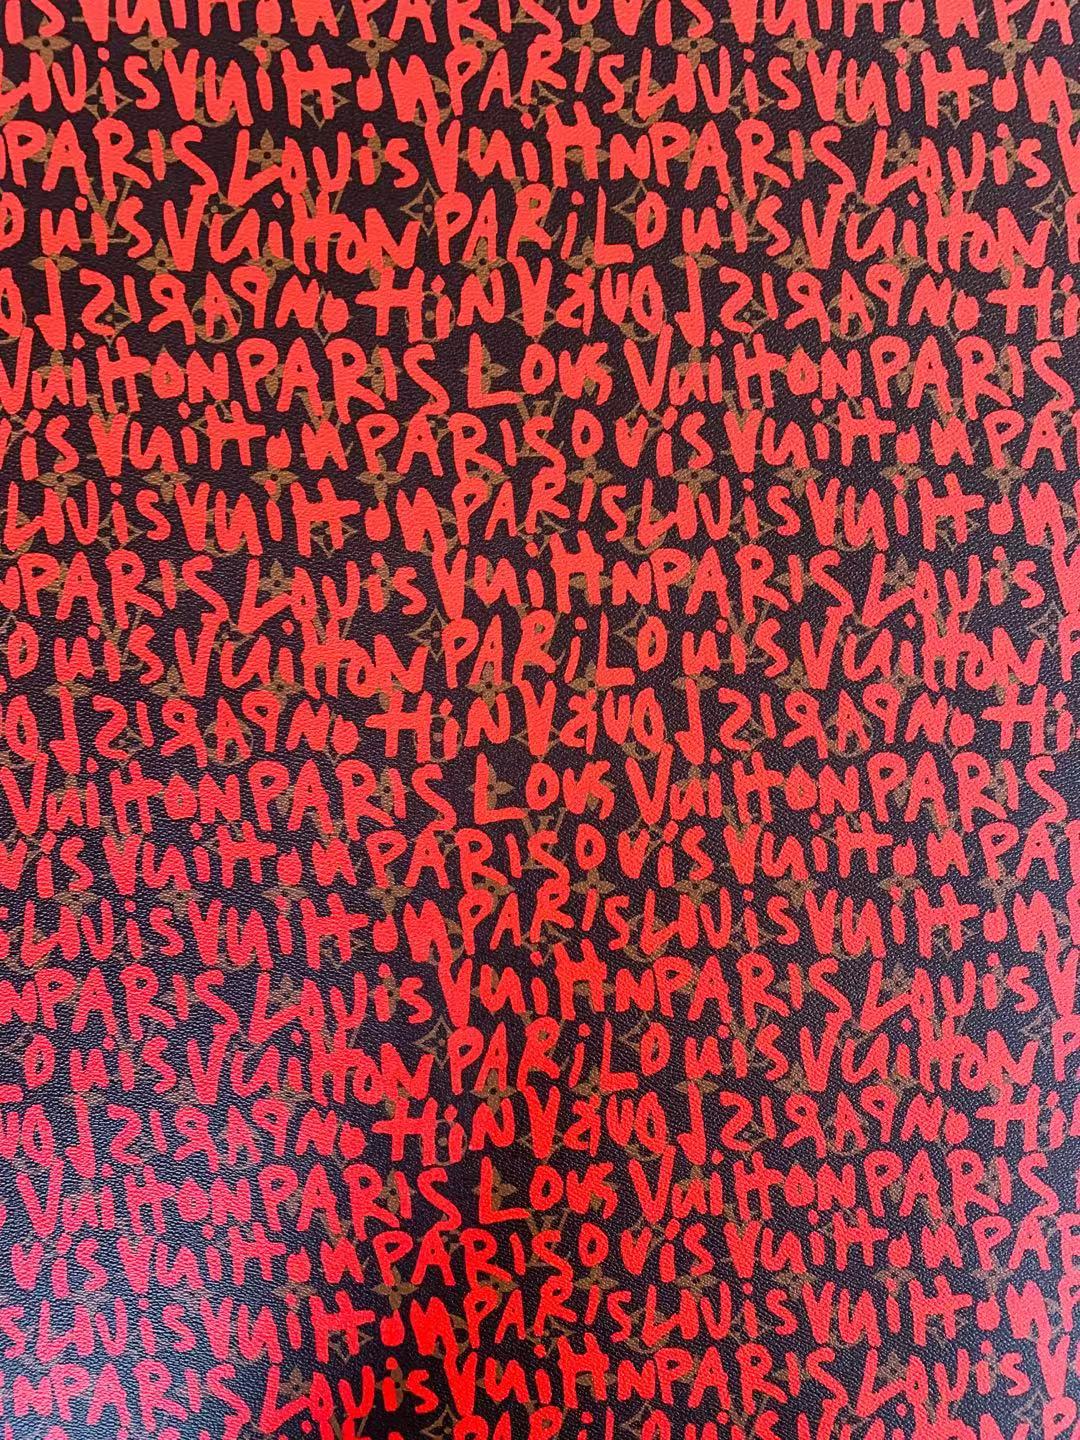 OVIS VUITTON PARIS OVIS VUITTON PA
LOUIS VUITTON PARIS LOUIS VUITTON
PARIS LOUIS VUITTON PARIS LOUIS V
OUIS VUITTON PARI LOUIS VUITTON P
LOUIS VUITTON PARIS LOUIS VUITTON PARIS
VUITTON PARIS LOUS VUITTON PARIS
VIS VUITTON PARIS OVIS VUITTON PA
LOUIS VUITTON PARIS LOUIS VUITTON
PARIS LOUIS VUITTON PARIS LOUIS V
OUIS VUITTON PARI LOUIS VUITTON P
LOUIS VUITTON PARIS LOUIS VUITTON PARIS
VUITTON PARIS LOUS VUITTON PARIS
VIS VUITTON PARIS OVIS VUITTON PA
LOUIS VUITTON PARIS LOUIS VUITTON
PARIS LOUIS VUITTON PARIS LOUIS V
LOUIS VUITTON PARI LOUIS VUITTON
LOUIS VUITTON PARIS LOUIS VUITTON PARIS
VUITTON PARIS LOUS VUITTON PARIS
VIS VUITTON PARIS OVIS VUITTON PAR
LOUIS VUITTON PARIS LOUIS VUITTON
PARIS LOUIS VUITTON PARIS LOUIS V